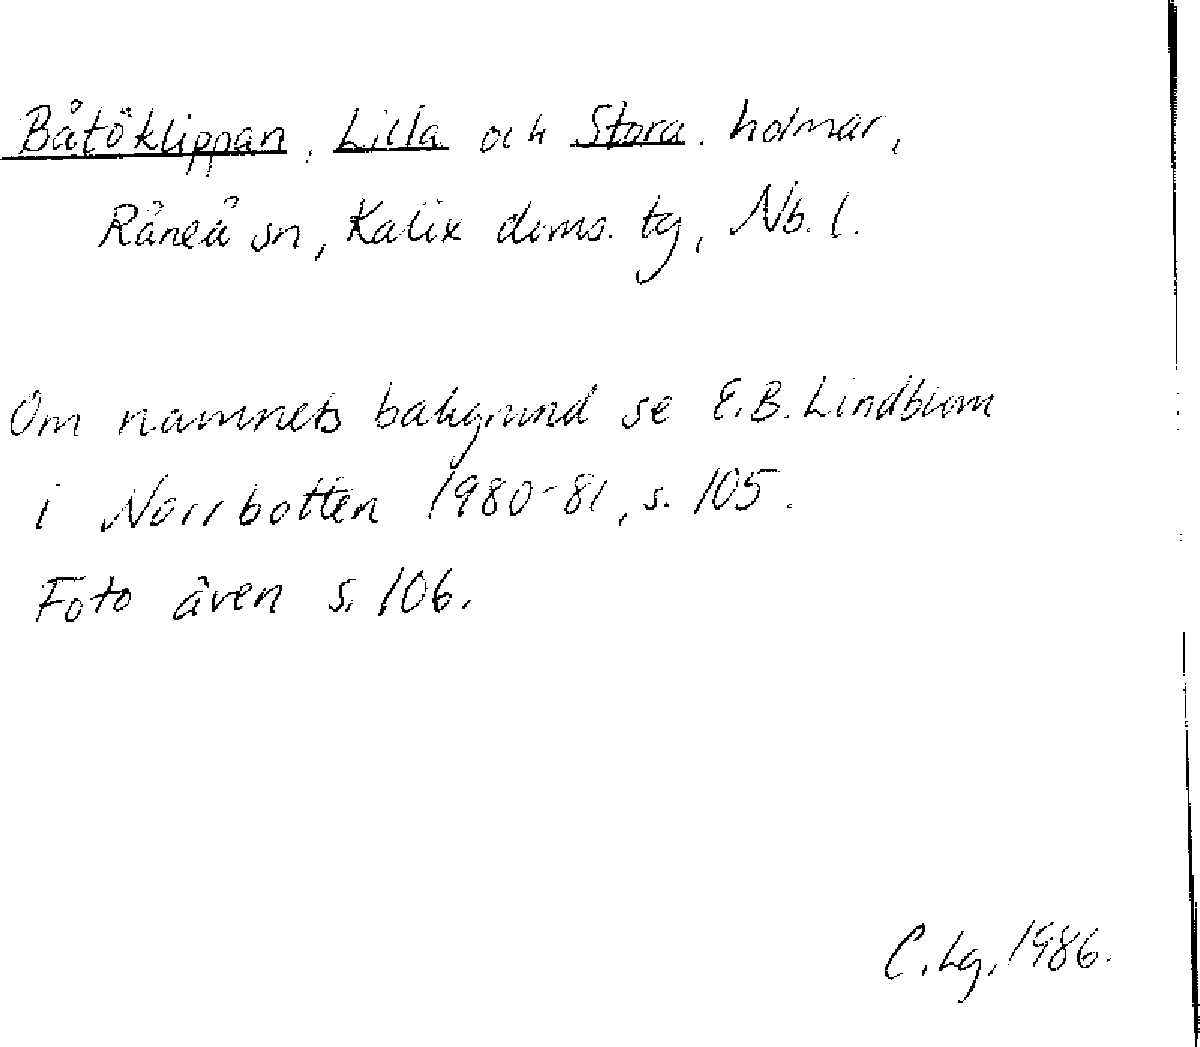 Båtöklippan, Lilla och Stora, holmar,
Råneå sn, Kalix doms. tg, Nb. l.
Om namnets bakgrund se E.B. Lindblom
i Norrbotten 1980-81, s. 105.
Foto även s. 106.
C. Lg, 1986.